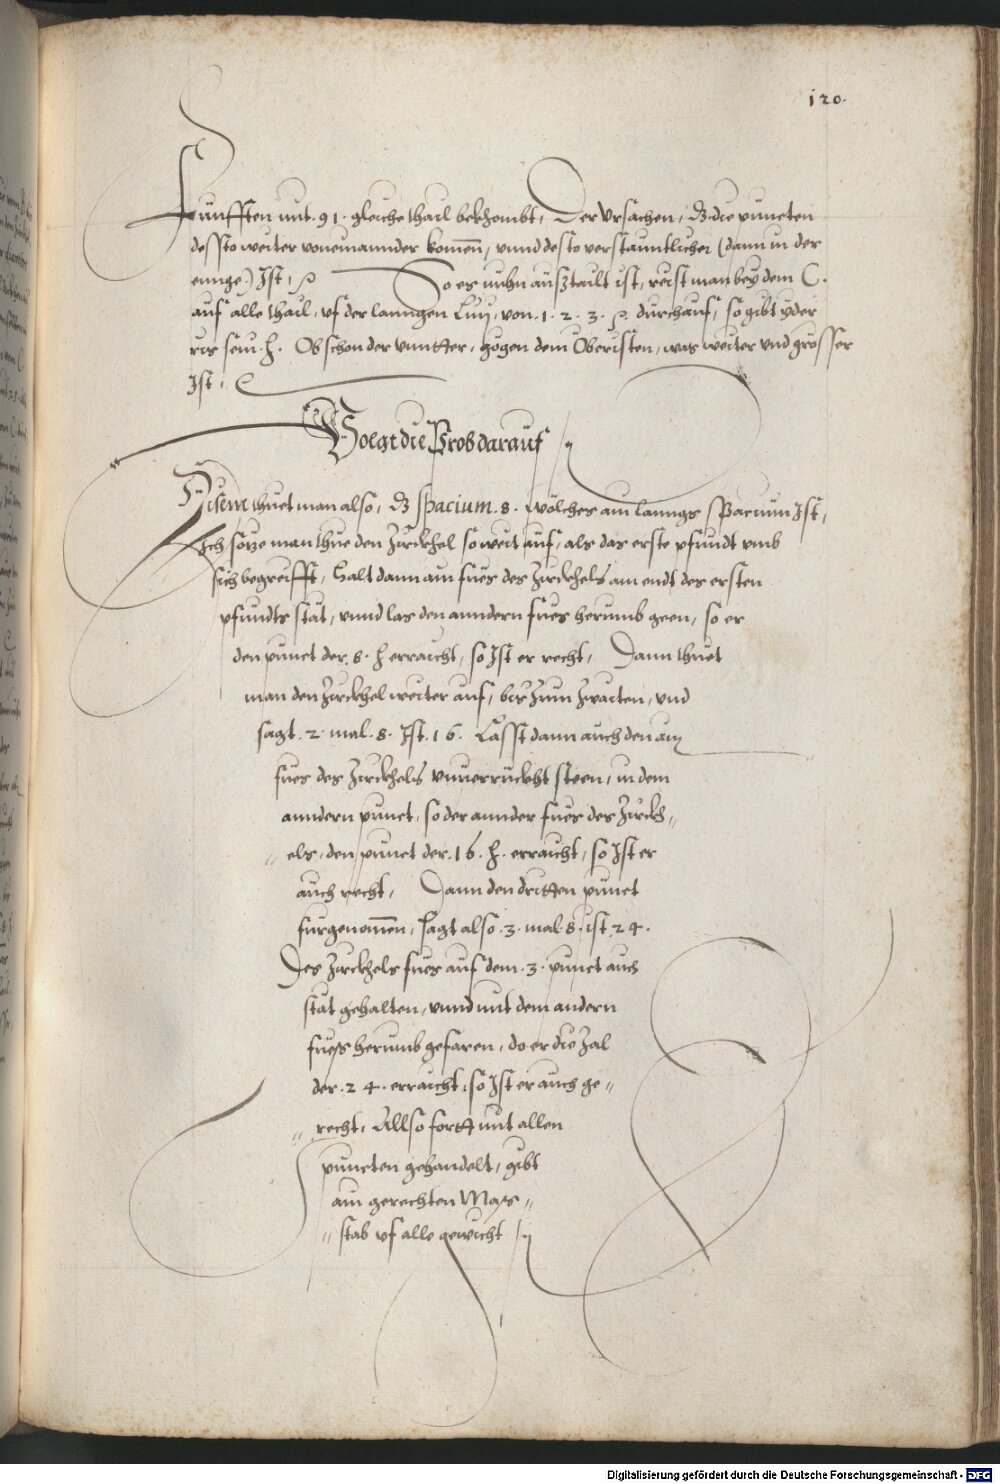 120.
Fünfften mit .91. gleiche thail bekhombt, Der Ursachen, dz die puncten
dessto weiter voneinannder komen, unnd desto verstanntlicher (dann in der
ennge) Ist,
So es nuhn auszthailt ist, reist man bey dem C.
auf alle thail, uf der lanngen Liny, von .1. 2. 3. durchauf, so gibt yder
ris sein . Ob schon der unntter, gögen dem Oberisten, was weiter und grösser
Ist.
Volgt die Prob darauf
Disem thuet man also, dz spacium .8. wölches ain lanngs spacium Ist,
Ich setze man thue den Zirckhel so weit auf, als das erste pfundt umb
sich begreifft, Halt dann ain fues des Zirckhels am endt des ersten
pfundts stät, unnd las den anndern fues herumb geen, so er
den punct der .8. erraicht, so Ist er recht, Dann thuet
man den Zirckhel weiter auf, bis zum zwaiten, und
sagt .2. mal .8. Ist .16. Lässt dann auch den ain
fues des Zirckhels unverruckht steen, in dem
anndern punct, so der annder fues des Zirckh„
„els, den punct der .16. erraicht, so Ist er
auch recht, Dann den dritten punct
furgenomen, sagt also .3. mal .8. ist .24.
Des Zirckhels fues auf dem .3. punct auch
stät gehalten, unnd mit dem andern
fuess herumb gefaren, do er die Zal
der .24. erraicht, so Ist er auch ge„
„recht, Allso fortt mit allen
puncten gehandelt, gibt
ain gerechten Mass„
„stab uf alle gewicht
Digitalisierung gefördert durch die Deutsche Forschungsgemeinschaft - DFG